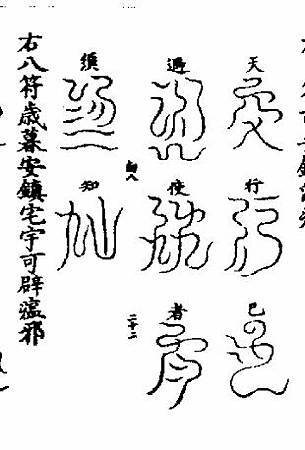 天行已
過使者
須知
二十二
右八符歳暮安鎮宅宇可辟瘟邪